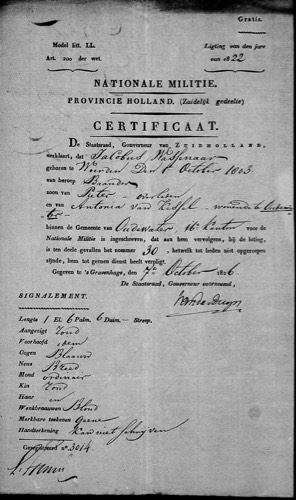 Gratis.
Model litt. LL.
Art. 200 der wet.
Ligting van den jare
van 1822
NATIONALE MILITIE.
PROVINCIE HOLLAND. (Zuidelijk gedeelte)
CERTIFICAAT.
De Staatsraad, Gouverneur van ZUIDHOLLAND,
verklaart, dat Jacobus Wassenaar
geboren te Woerden Den 1e October 1803
van beroep
zoon van Pieter – overleden
en van Antonia van woonende te
binnen de Gemeente van Oudewater, 16e Kanton voor de
Nationale Militie is ingeschreven, dat aan hem vervolgens, bij de loting,
is ten deele gevallen het nommer 36, hetwelk tot heden niet opgeroepen
zijnde, hem tot geenen dienst heeft verpligt.
Gegeven te 's Gravenhage, den 7e October 1826
De Staatsraad, Gouverneur voornoemd,
SIGNALEMENT.
Lengte 1 El 6 Palm 6 Duim – Streep.
Aangezigt Rond
Voorhoofd idem
Oogen Blaauw
Neus Breed
Mond ordinair
Kin Rond
Haar en
Wenkbraauwen Blond
Merkbare teekenen Geene
Handteekening Kan niet schrijven
Geregistreerd No. 3014